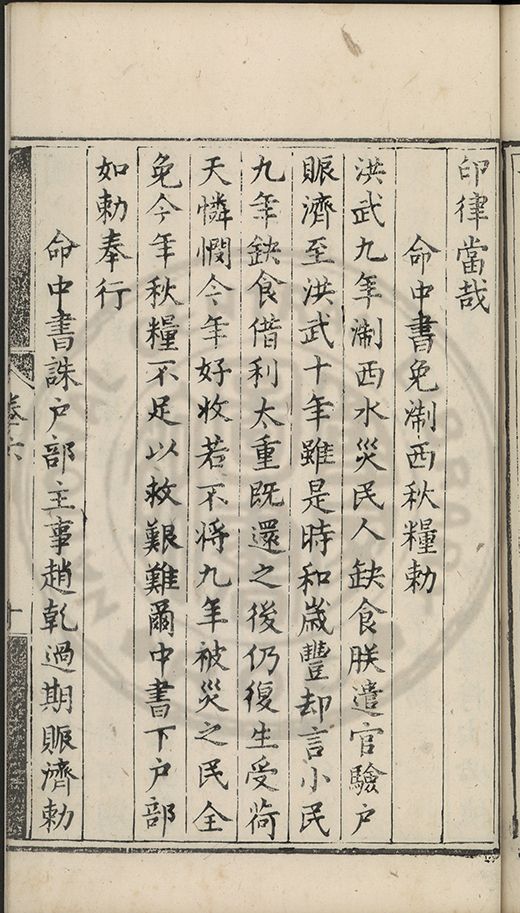 印律當哉
命中書免淛西秋糧勅
洪武九年淛西水災民人缺食朕遣官驗户
賑濟至洪武十年雖是時和歲豐却言小民
九年缺食借利太重既還之後仍復生受荷
天憐憫今年好收若不将九年被災之民全
免今年秋糧不足以救艱難爾中書下户部
如勅奉行
命中書誅户部主事趙乾過期賑濟勅
卷六
十